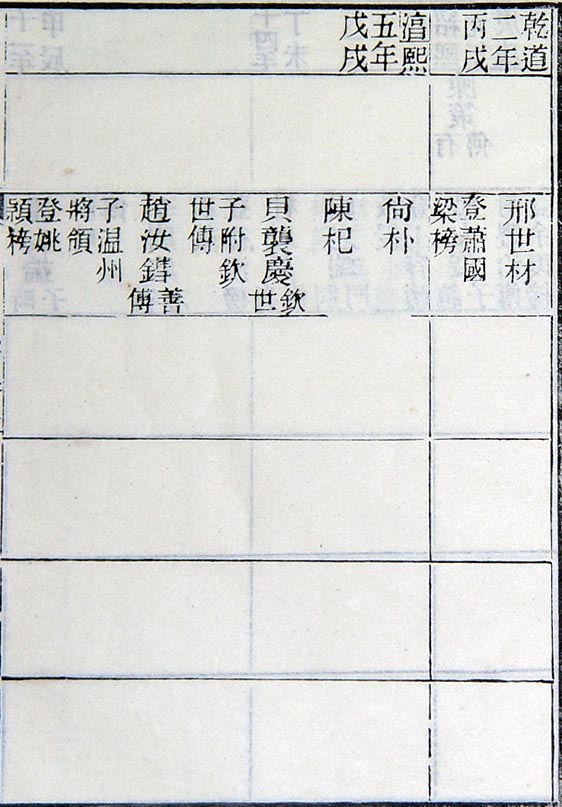 乾道
二年
丙戌
湻熙
五年
戊戌
邢世材
登蕭國
梁榜
尙朴
陳杞
貝襲慶
欽
世
子附欽
世傳
趙汝
善
傅
子温州
將領
登姚
頴榜